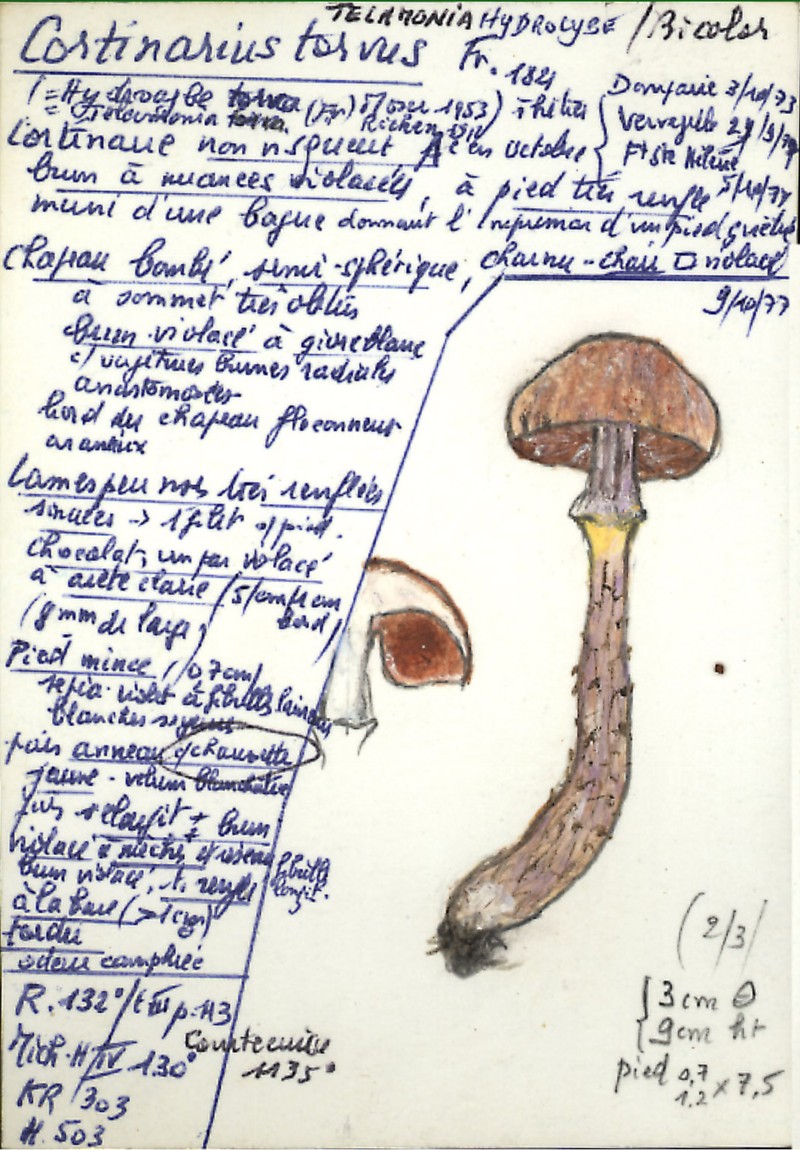 TELAMONIA HYDROCYBE / Bicolor
Cortinarius torvus Fr. 1821
(= Hydrocybe torva (Fr) Moser 1953) 
= Telamonia torva. Ricken
Domfarie 3/10/73
29/9/74
Ft Ste Hélène
5/10/77
Cortinaire non visqueux en octobre
brun à nuances violacées, à pied très renflé
muni d'une bague donnant l'impression d'un pied guêtré
Chapeau bombé, semi-sphérique, charnu - chair violacé
9/10/77
à sommet très obtus
brun-violacé à givre blanc
c/ vergetures brunes radiales
anastomosées
bord du chapeau floconneux
aranéeux
Lames peu nbs très renflées
sinuées -> 1 filet s/ pied.
chocolat, un peu violacé
à arête claire (5/cm au
bord)
(8 mm de large)
Pied mince, (0,7cm)
sépia-violet à fibrilles
blanches soyeuses
puis anneau c/ chaussette
jaune - velum blanchâtre
puis s'élargit ± brun
violacé à mèches
brun violacé, t. renflé
fibrille
longit.
à la base (>1cm)
tordu
odeur camphrée
R. 132°/t III p. 113
Mich. H IV 130°
Courtecuisse
1135°
KR 303
H. 503
(2/3)
3 cm
9 cm ht
pied 0,7
1,2 x 7,5